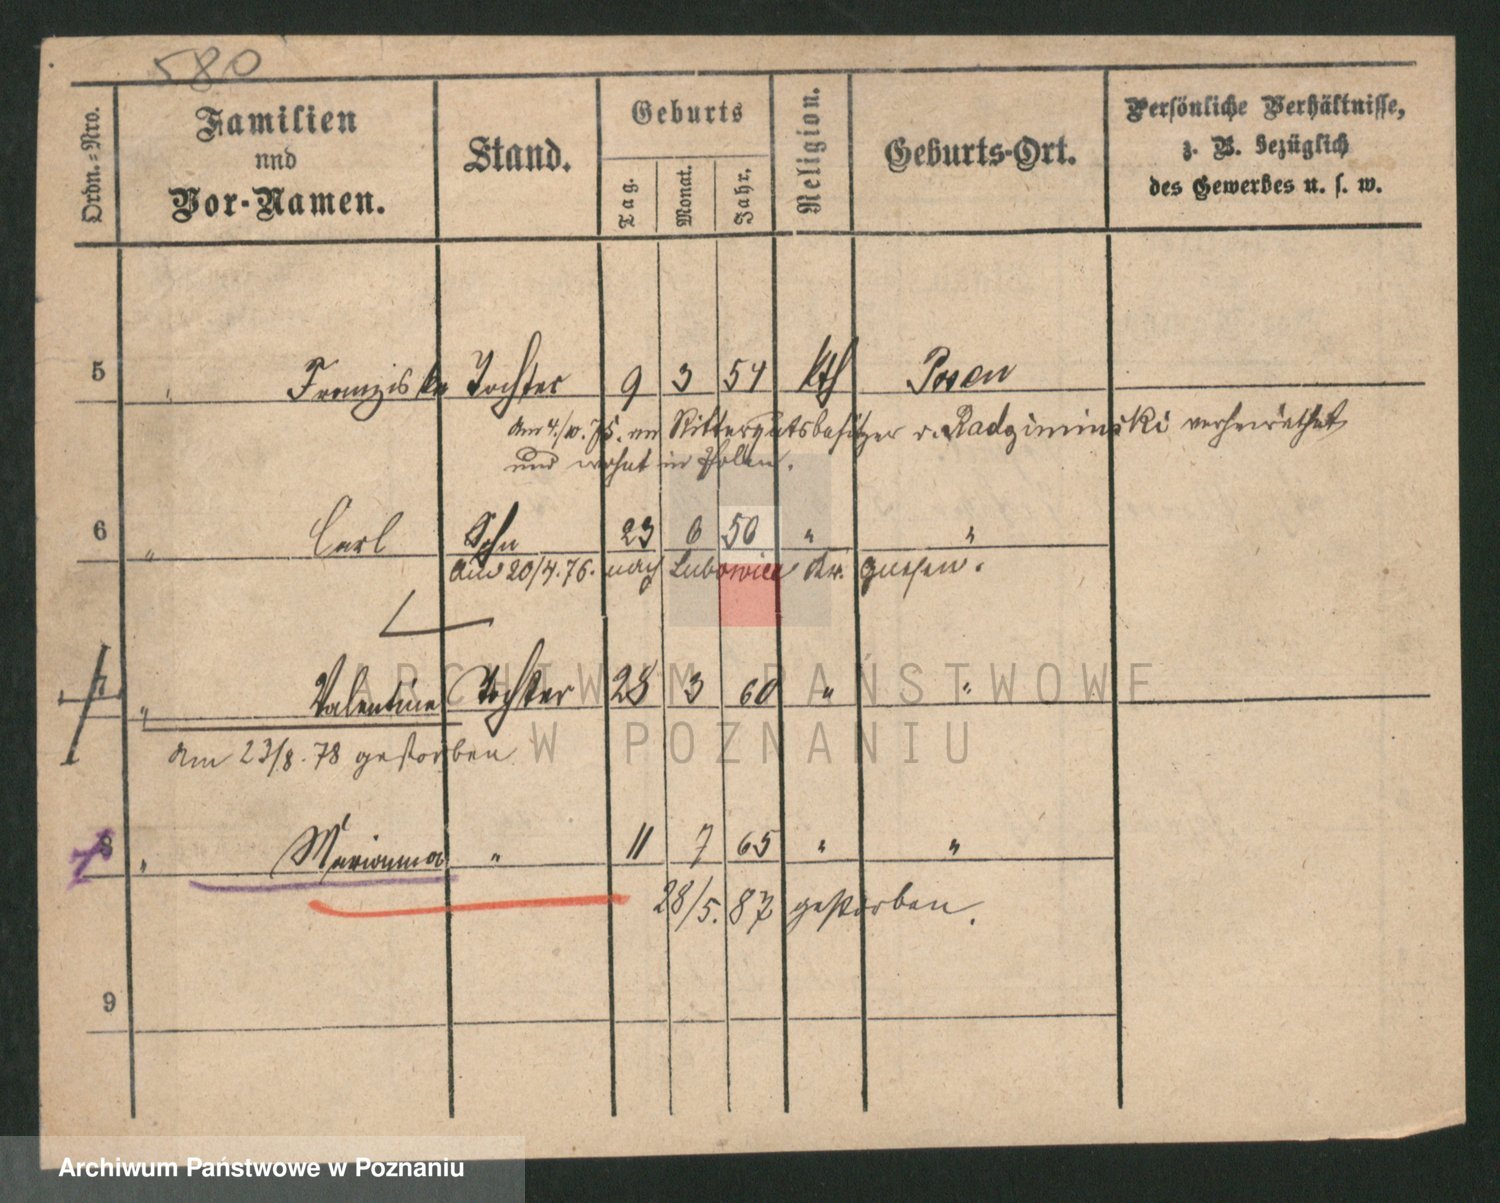 580
Ordn.=Nro.
Familien
und
Vor-Namen.
Stand.
Geburts
Tag.
Monat.
Jahr.
Religion.
Geburts-Ort.
Persönliche Verhältnisse,
z. B. bezüglich
des Gewerbes u. s. w.
5 " Franziska Tochter 9 3 54 kth Posen
Am 4./10.75. an Rittergutsbesitzer v. Radziminski verheirathet
und wohnt in Polen.
6 " Carl Sohn 23 6 50 " "
Am 20/4.76. nach Lubowice Kr. Gnesen.
7 " Valentine Tochter 28 3 60 " "
Am 23/8.78 gestorben
8 " Marianna " 11 7 65 " "
28/5.87 gestorben.
9
ARCHIWUM PAŃSTWOWE
W POZNANIU
Archiwum Państwowe w Poznaniu